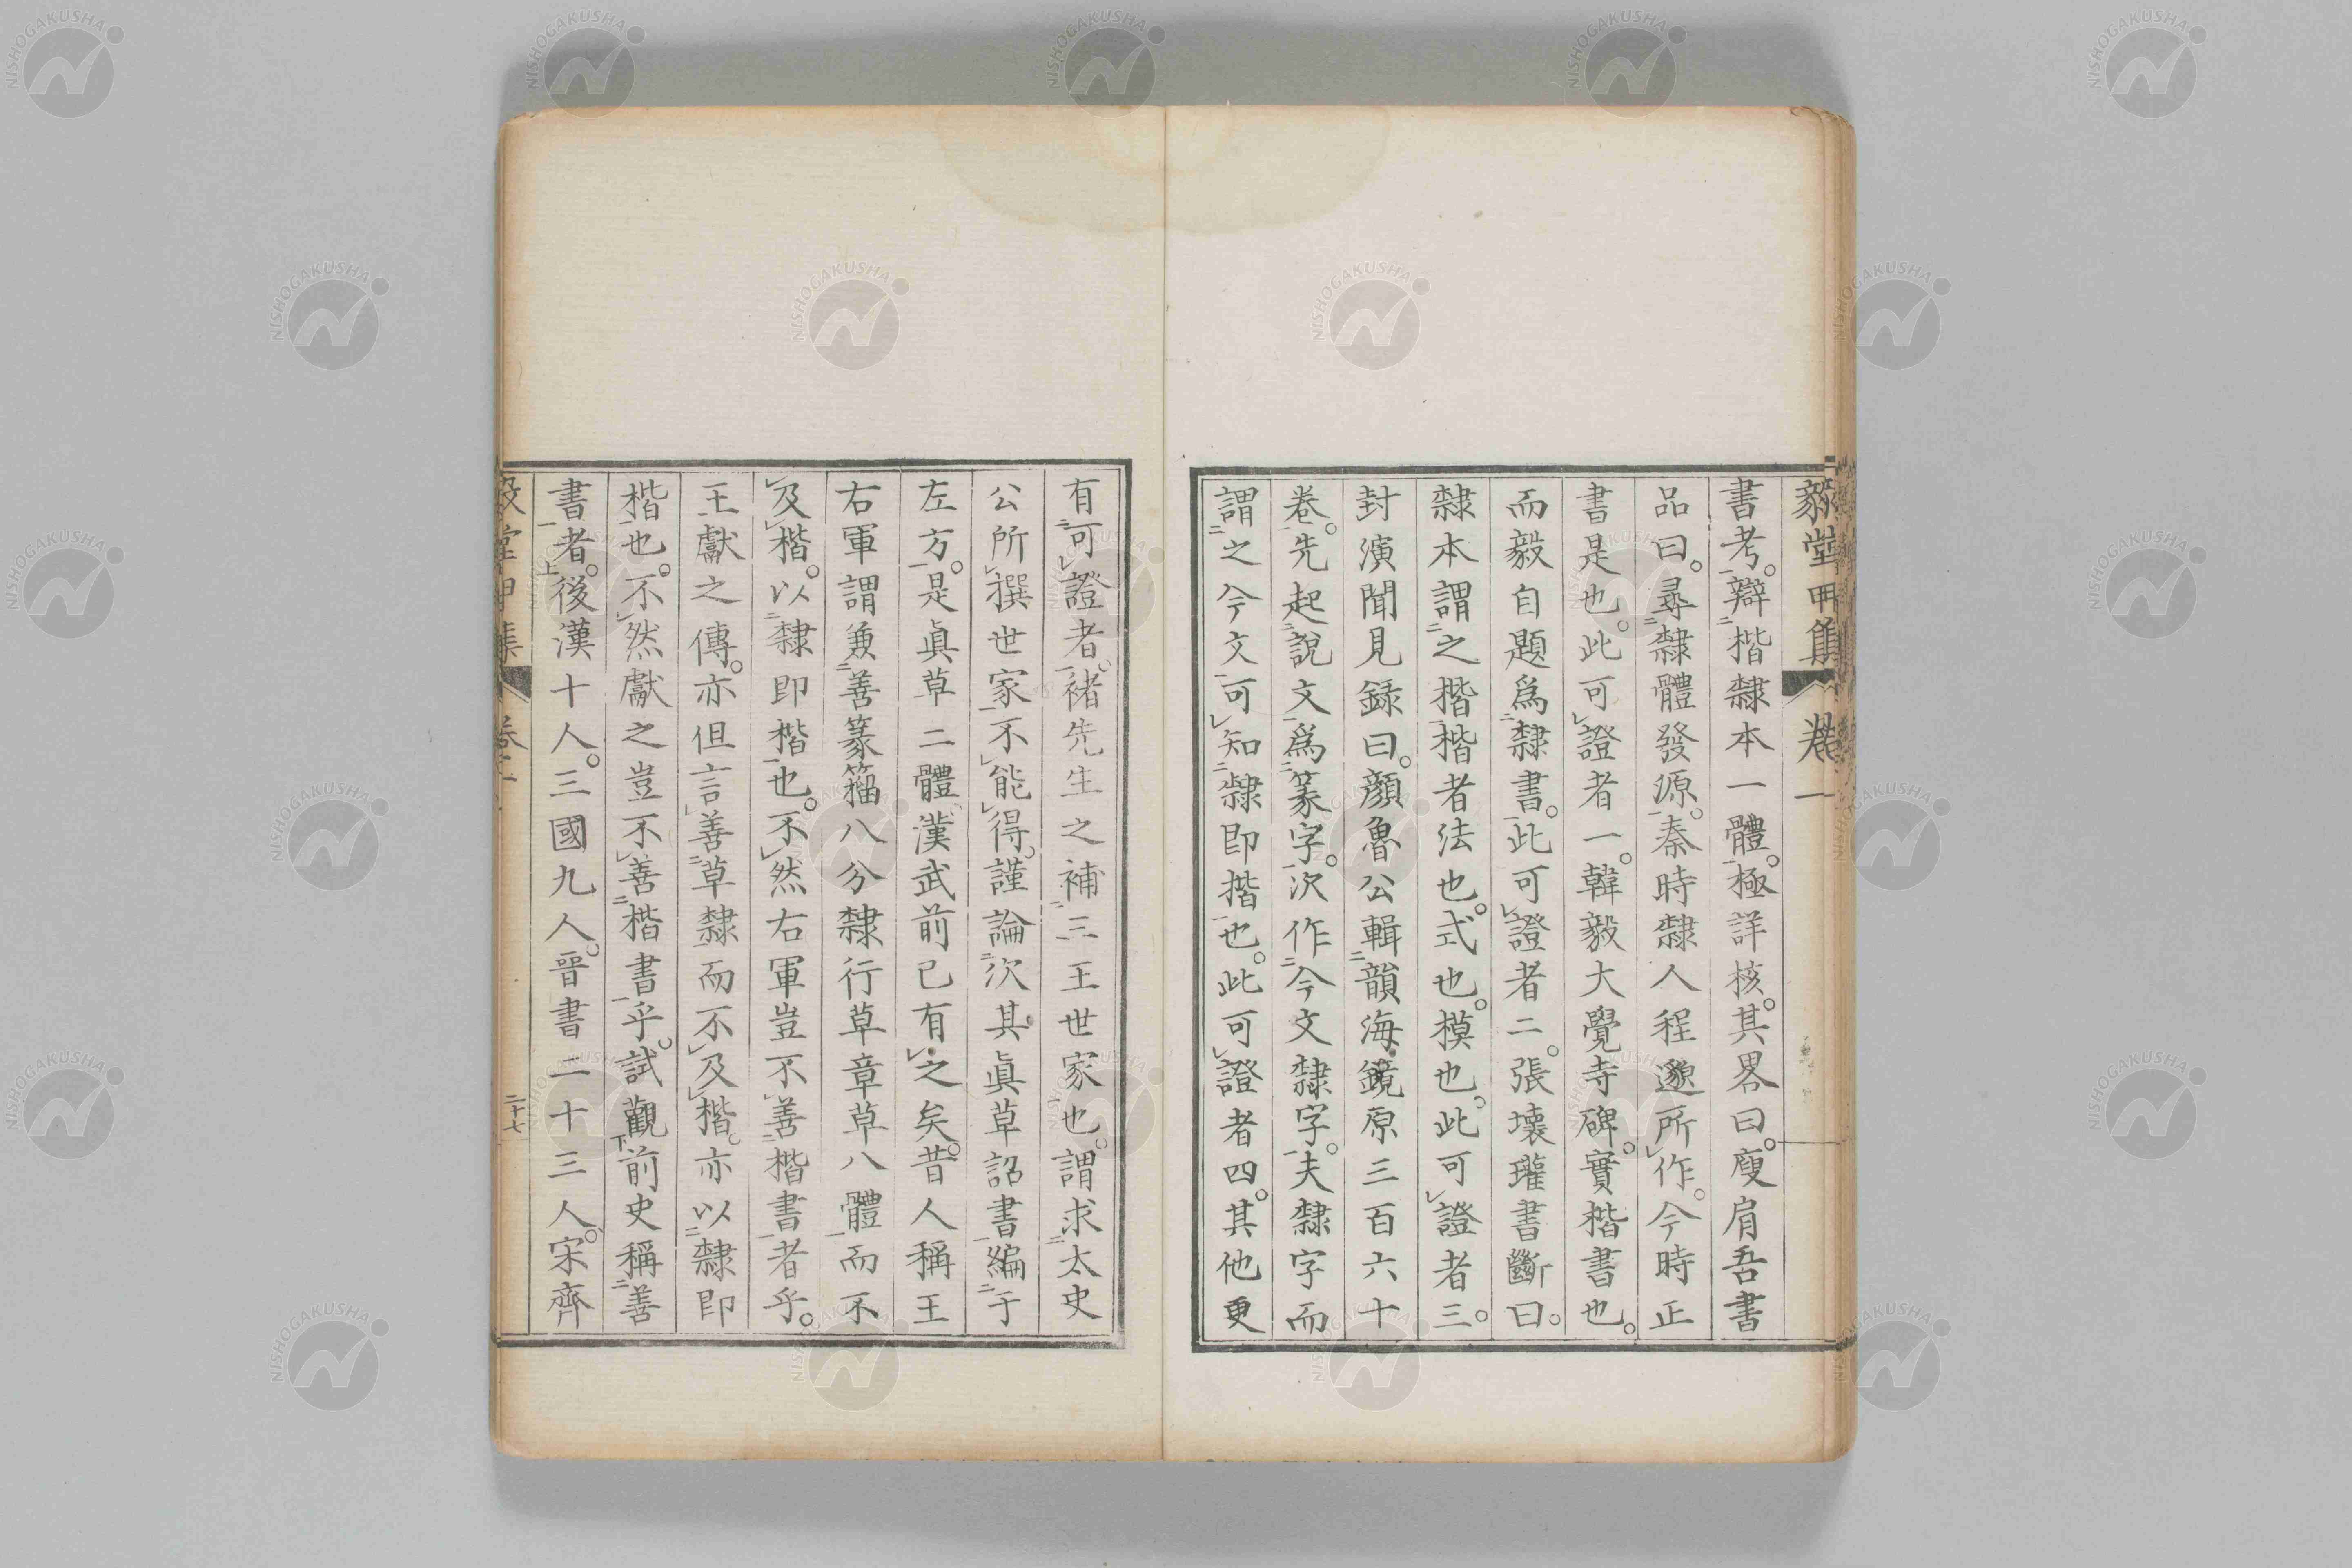 毅堂甲集 卷一
書考。辯楷隸本一體。極詳核。其畧曰。廋肩吾書
品曰。尋隸體發源。秦時隸人程邈所作。今時正
書是也。此可證者一。韓毅大覺寺碑。實楷書也。
而毅自題爲隸書。此可證者二。張壞瓘書斷曰。
隸本謂之楷楷者法也。式也。模也。此可證者三。
封演聞見録曰。顏魯公輯韻海鏡原三百六十
卷。先起說文爲篆字。次作今文隸字。夫隸字而
謂之今文可知隸即揩也。此可證者四。其他更
有可證者。褚先生之補三王世家也。謂求太史
公所撰世家不能得。謹論次其眞草詔書編于
左方。是眞草二體漢武前已有之矣。昔人稱王
右軍謂兼善篆籀八分隸行草章草八體而不
及楷。以隸即楷也。不然右軍豈不善楷書者乎。
王獻之傳。亦但言善草隸而不及楷。亦以隸即
楷也。不然獻之豈不善楷書乎。試觀前史稱善
書者。後漢十人。三國九人。晉書二十三人。宋齊
二十七